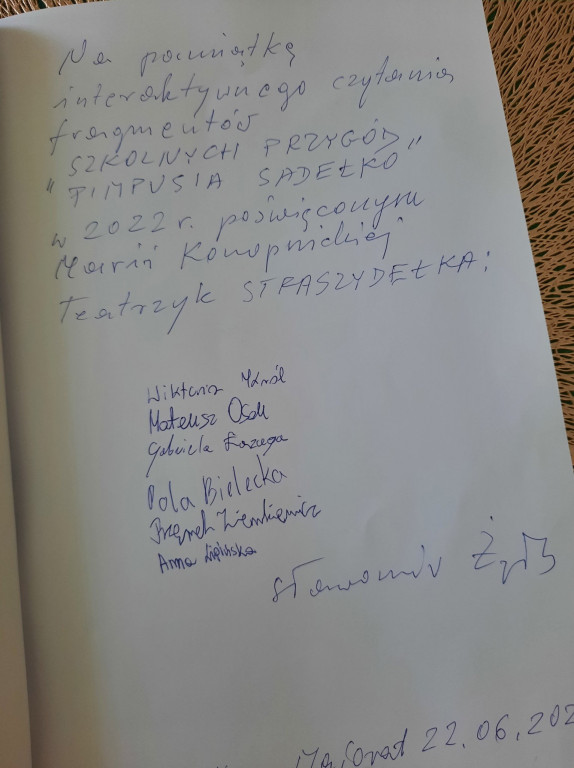 Na pamiątkę
interaktywnego czytania
fragmentów
"SZKOLNYCH PRZYGÓD
PIMPUSIA SADEŁKO"
w 2022 r. poświęconym
Marii Konopnickiej
Teatrzyk STRASZYDEŁKA:
Wiktoria Król
Mateusz Osak
Gabriela
Pola Bielecka
Anna
Sławomir
22.06.202